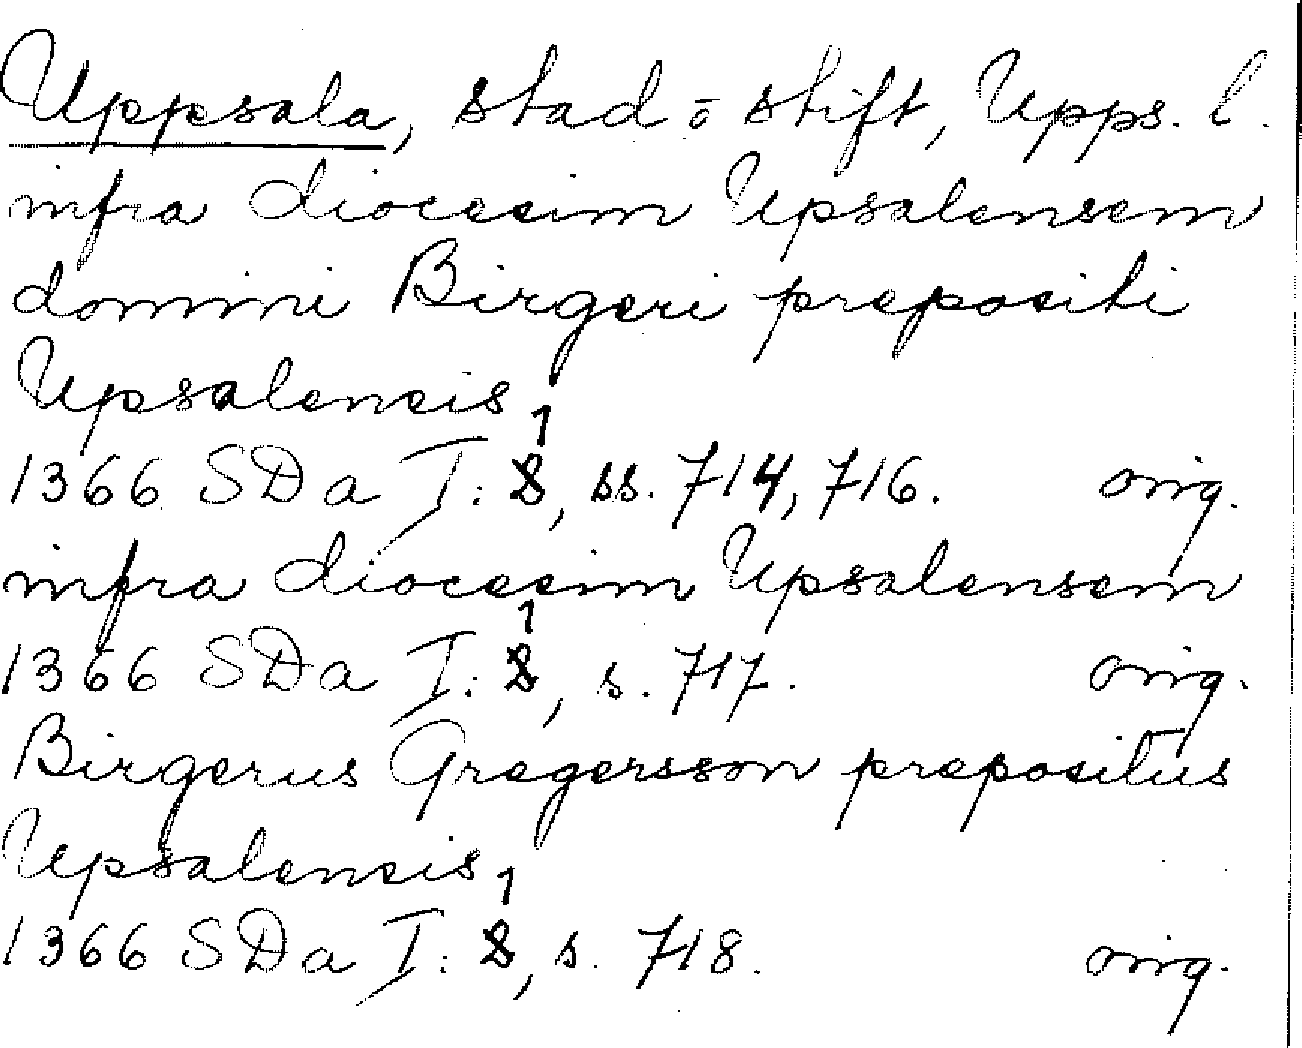 Uppsala, stad o stift, Upps. l.
infra diocesim Upsalensem
domini Birgeri prepositi
Upsalensis
1366 SDa I: 1, ss. 714, 716. orig.
infra diocesim Upsalensem
1366 SDa I: 1, s. 717. orig.
Birgerus Gregersson prepositus
Upsalensis
1366 SDa I: 1, s. 718. orig.